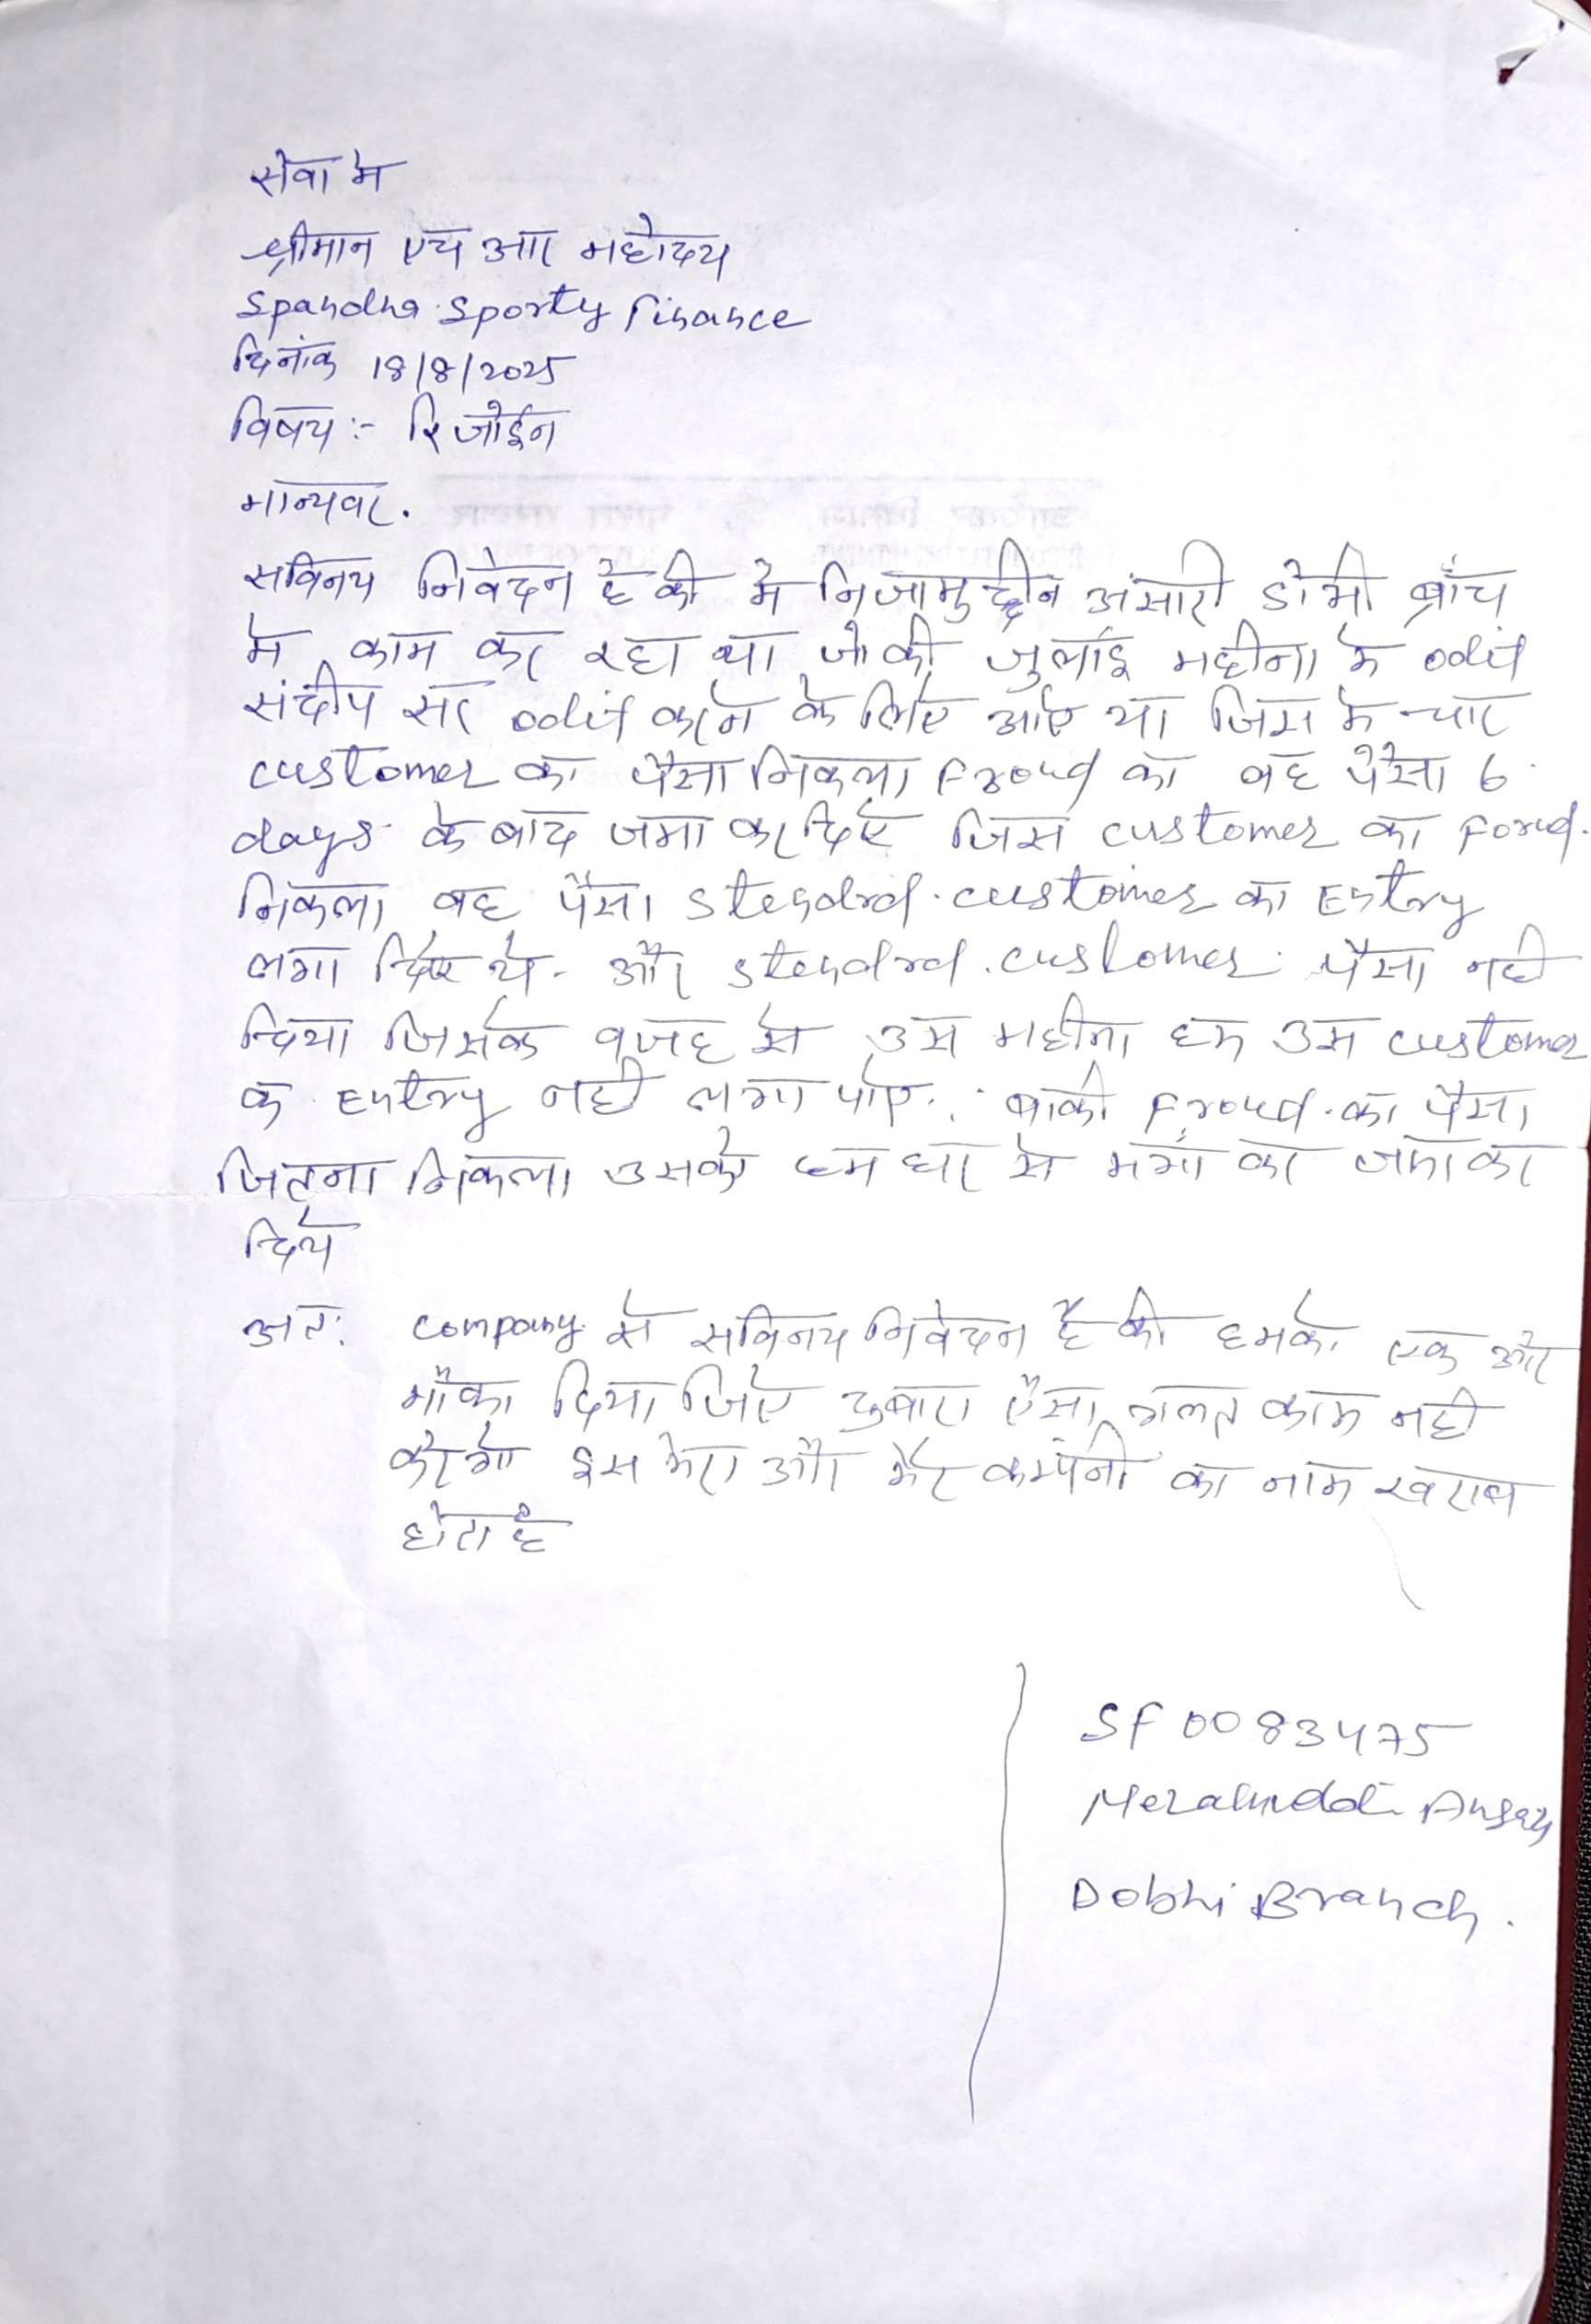 सेवा मे
श्रीमान एच आर महोदय
Spandna Sporty Finance
दिनांक 18/8/2025
विषय :- रिजोईन
मान्यवर.
सविनय निवेदन है की मे निजामुद्दीन अंसारी डोभी ब्राँच
मे काम कर रहा था जो की जुलाई महीना मे odit
संदीप सर odit करने के लिए आए था जिस मे चार
customer का पैसा निकला Froud का वह पैसा 6
days के बाद जमा कर दिए जिस customer का Forud.
निकला वह पैसा stendrd. customer का Entry
लगा दिए थे. और stendrd. customer पैसा नही
दिया जिसके वजह से उस महीना हम उस customer
क Entry नही लगा पाए. बाकी Froud. का पैसा
जितना निकला उसको हम घर से मगाँ कर जमा कर
दिये
अतः company से सविनय निवेदन है की हमको एक और
मौका दिया जिए दुबारा ऐसा गलत काम नही
करेगे इस मेरा और मेरे कम्पनी का नाम खराब
होता है
SF0083475
Ansary
Dobhi Branch.